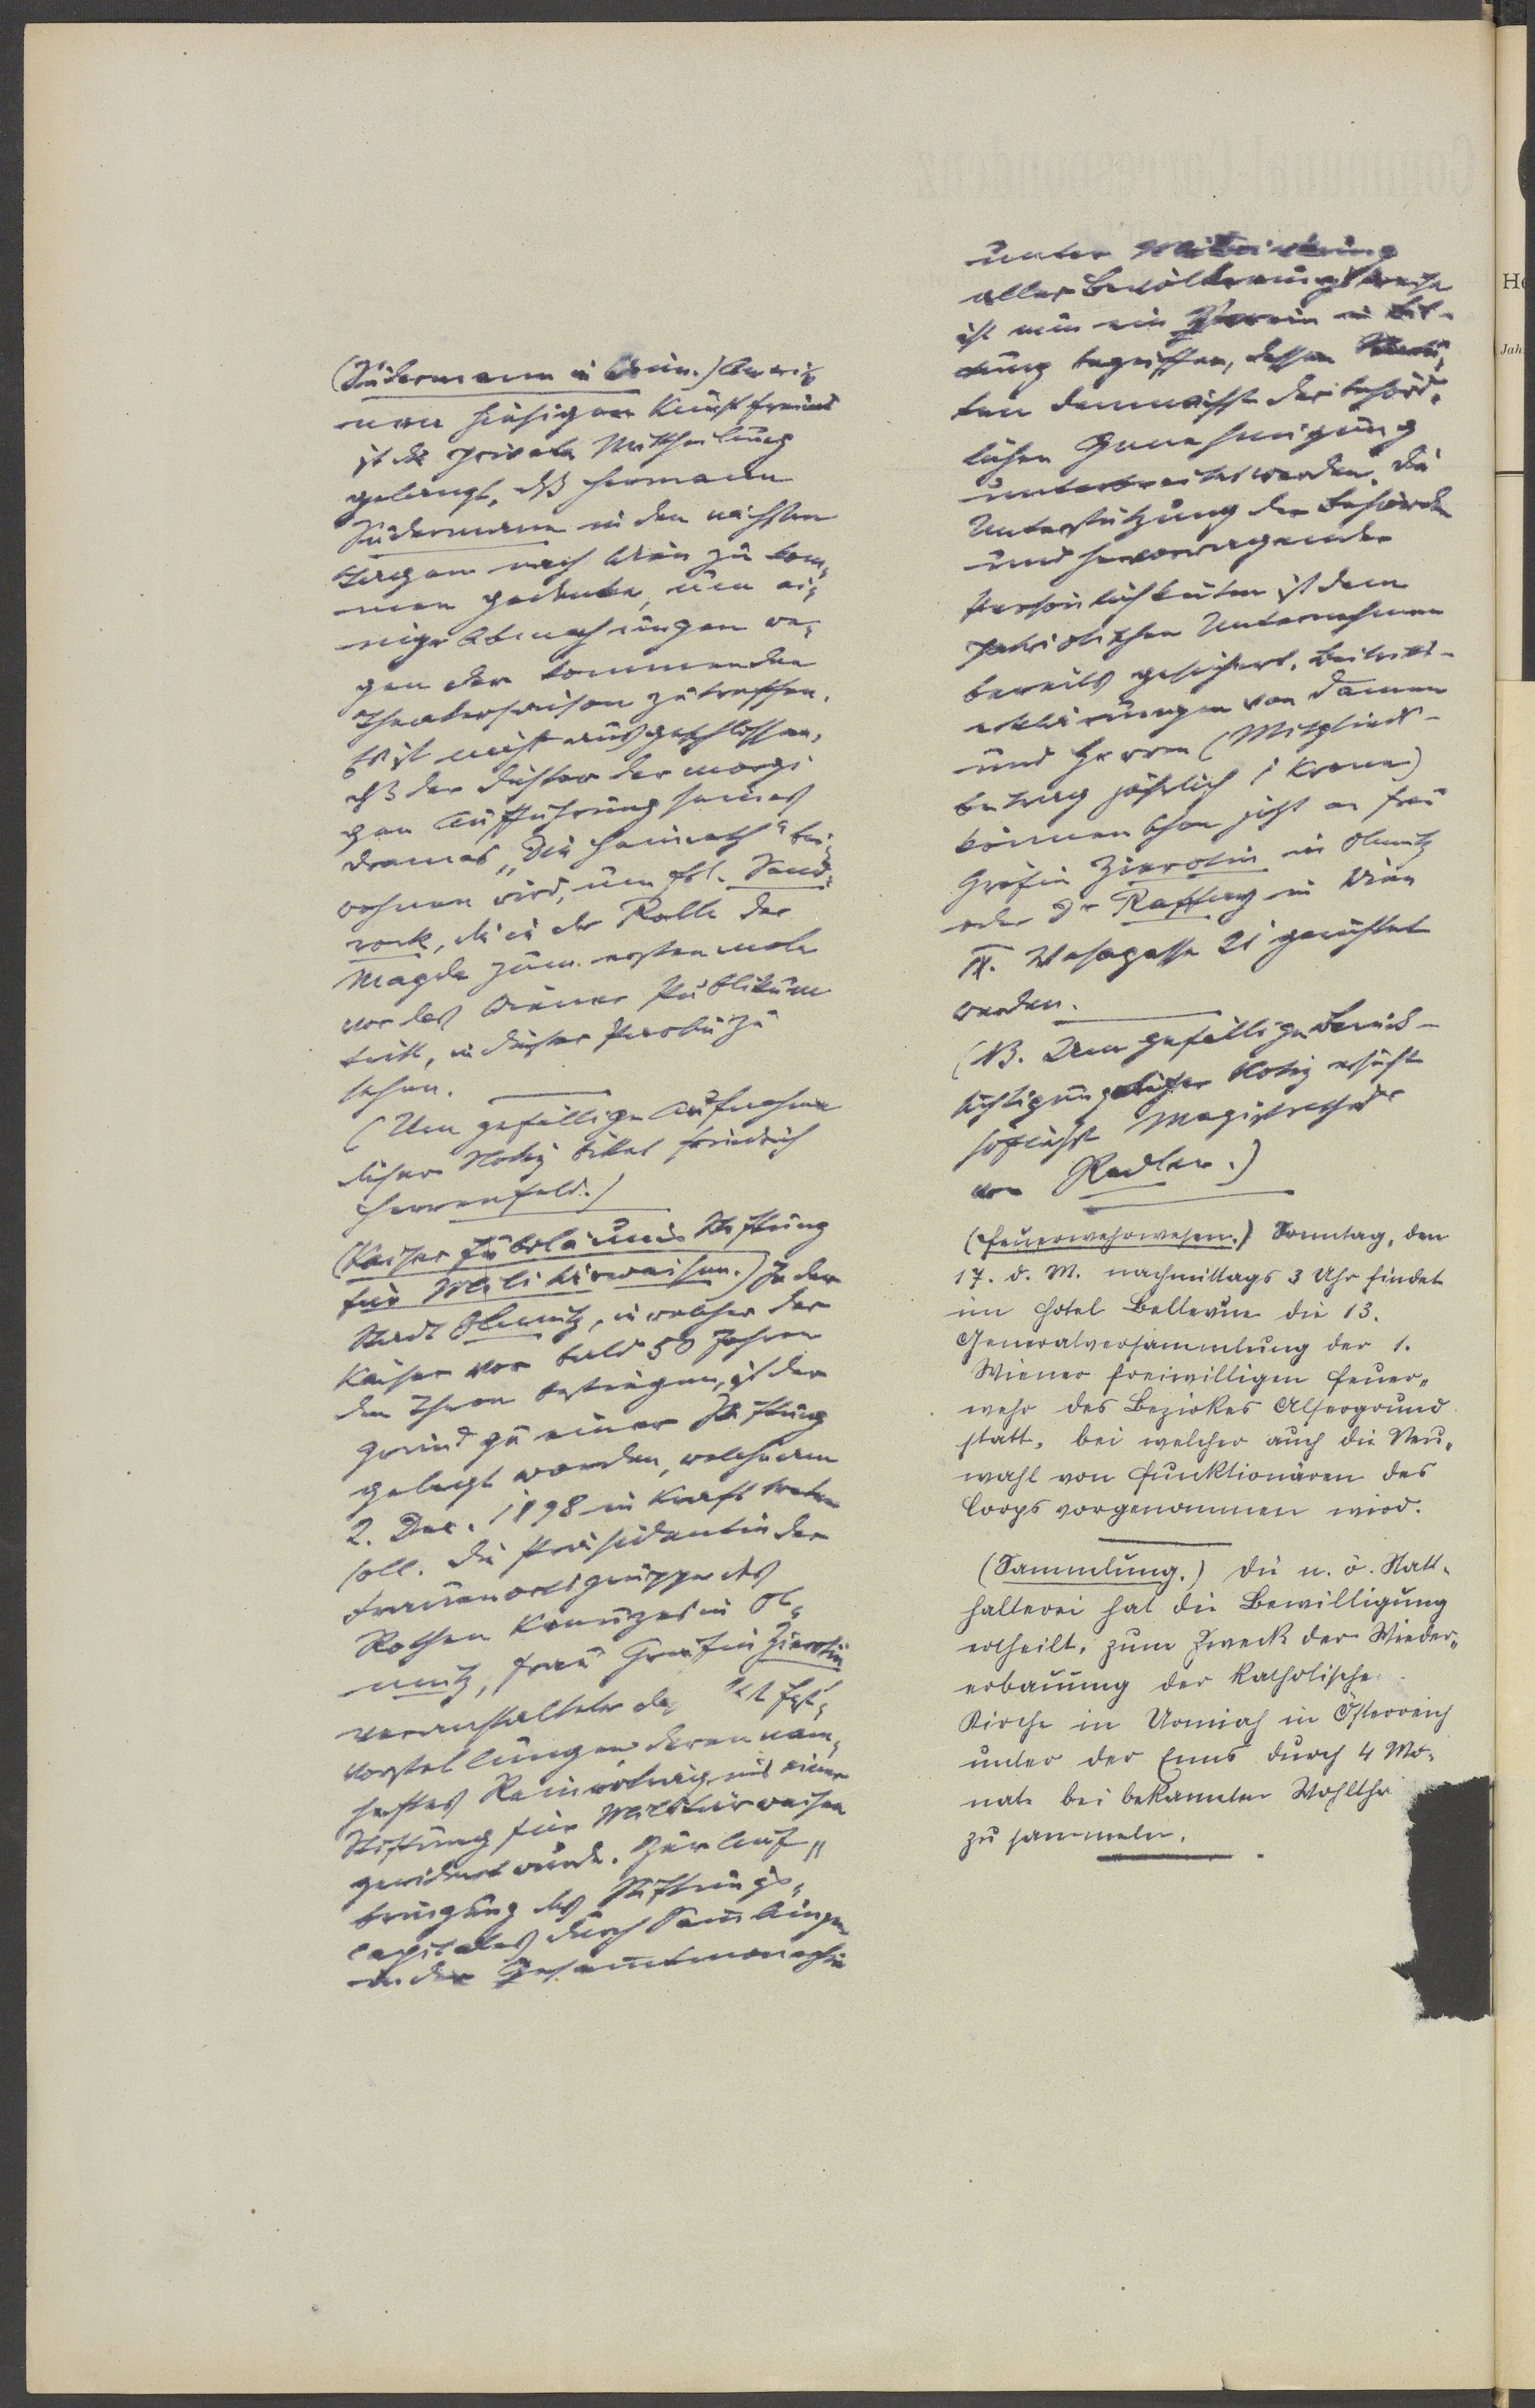 (Sudermann in Wien.) An ei-
nen hiesigen Kunstfreund
ist die private Mittheilung
gelangt, dß Hermann
Sudermann in den nächsten
Tagen nach Wien zu kom-
men gedenke, um ei-
nige Abmachungen we-
gen der kommenden
Theatersaison zu treffen.
Es ist nicht ausgeschlossen,
dß der Dichter der morgi
gen Aufführung seines
Dramas „Die Heimath" bei-
wohnen wird, um Frl. Sand-
rock, die in der Rolle der
Magda zum erstenmale
vor das Wiener Publikum
tritt, in dieser Partie zu
sehen.
(Um gefällige Aufnahme
dieser Notiz bittet Friedrich
Herrenfeld.)
(Kaiser Jubiläums Stiftung
für Militärwaisen.) In der
Stadt Olmütz, in welcher der
Kaiser vor bald 50 Jahren
den Thron bestiegen, ist der
Grund zu einer Stiftung
gelegt worden, welche am
2. Dec. 1898 in Kraft treten
soll. Die Präsidentin der
Frauenortsgruppe des
Rothen Kreuzes in Ol-
mütz, Frau Gräfin Zierotin
veranstaltete Fest-
vorstellungen deren nam-
haftes Reinerträgnis einer
Stiftung für Militärwaisen
gewidmet wurde. Zur Auf-
bringung des Stiftungs-
capitales durch Sammlungen
in der Gesammtmonarchie
unter Mitwirkung
aller Bevölkerungskreise
ist nun ein Verein in Bil-
dung begriffen, dessen Statu-
ten demnächst der behörd-
lichen Genehmigung
unterbreitet werden. Die
Unterstützung der Behörden
und hervorragender
Persönlichkeiten ist dem
patriotischen Unternehmen
bereits gesichert. Beitritts-
erklärungen von Damen
und Herren (Mitglieds-
beitrag jährlich 1 Krone)
können schon jetzt an Frau
Gräfin Zierotin in Olmütz
oder Dr in Wien
IX. Wasagasse 21 gerichtet
werden.
(NB. Um gefällige Berück-
sichtigung dieser Notiz ersucht
höflichst Magistrathsrath
von Radler.)
(Feuerwehrwesen.) Sonntag, den
17. d. M. nachmittags 3 Uhr findet
im Hotel Bellevue die 13.
Generalversammlung der 1.
Wiener freiwilligen Feuer-
wehr des Bezirkes Alsergrund
statt, bei welcher auch die Neu-
wahl von Funktionären des
Corps vorgenommen wird.
(Sammlung.) Die n. ö. Statt-
halterei hat die Bewilligung
ertheilt, zum Zweck der Wieder-
erbauung der Katholische
Kirche in Urmiah in Österreich
unter der Enns durch 4 Mo-
nate bei bekannten Wohlthä
zu sammeln.